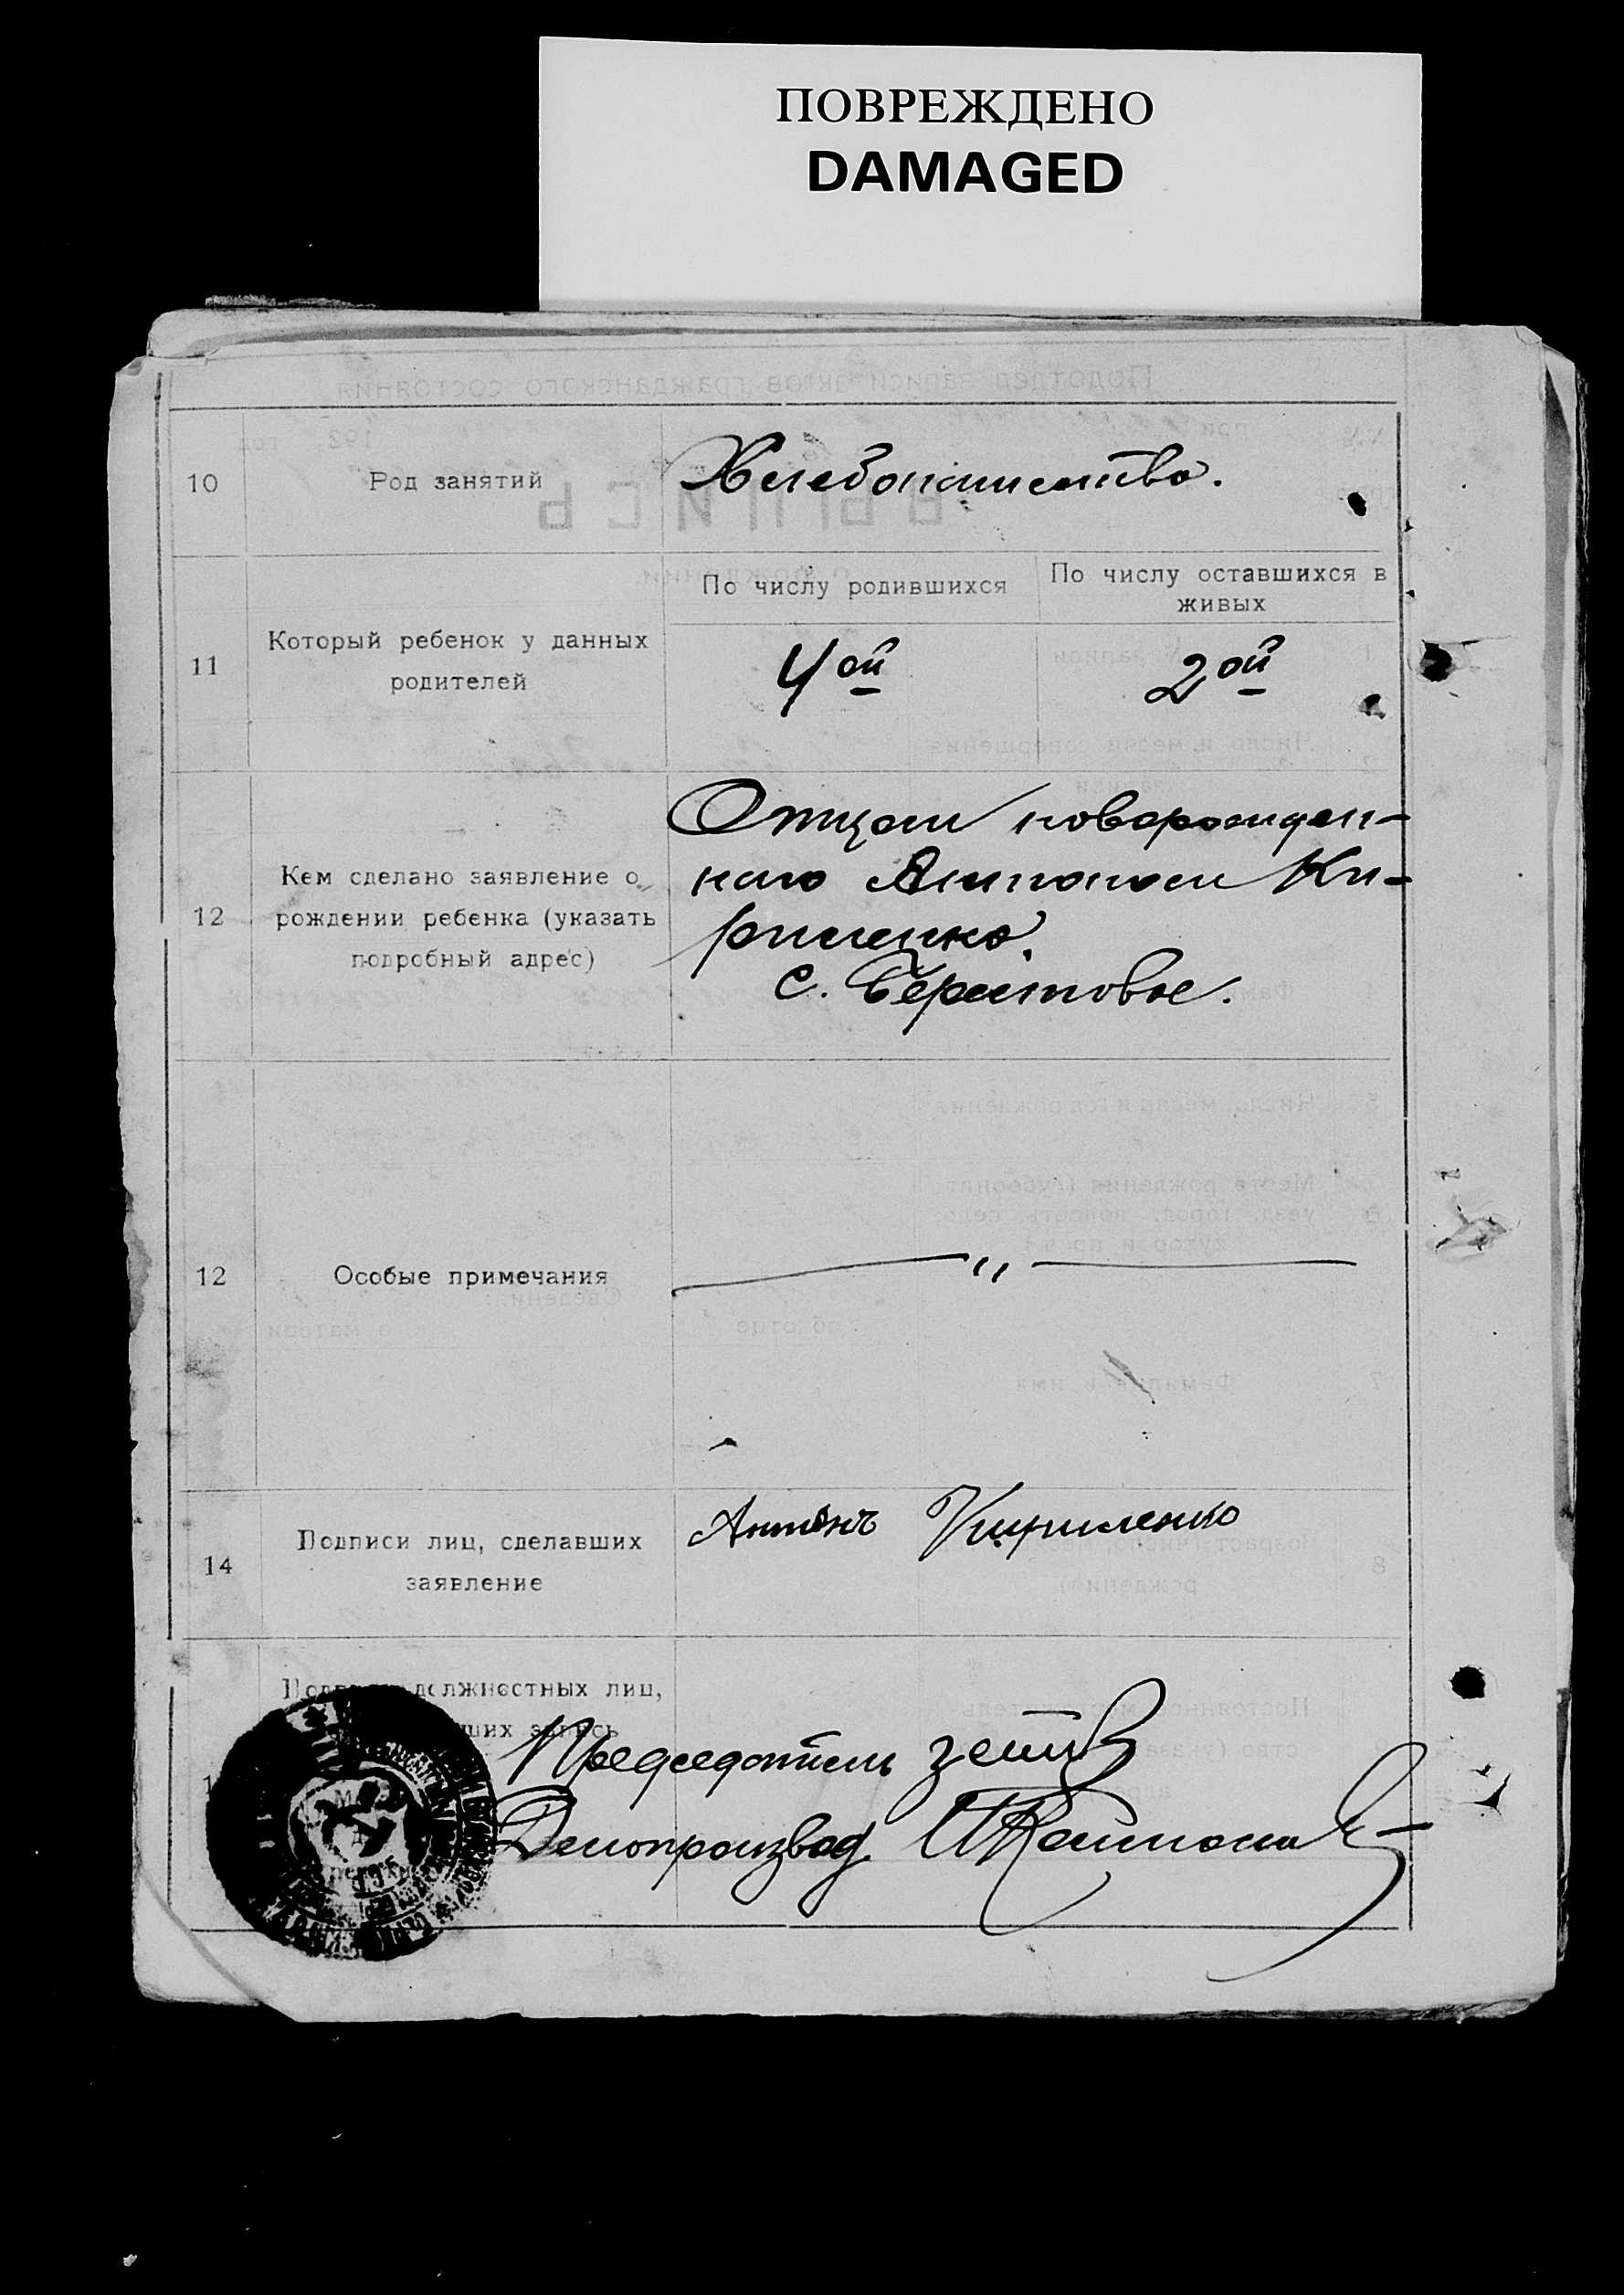 ПОВРЕЖДЕНО
DAMAGED
10 Род занятий Хлебопашество.
По числу родившихся По числу оставшихся в
живых
11 Который ребенок у данных
родителей
4ой 2ой
Отцом новорожден-
12 Кем сделано заявление о
рождении ребенка (указать
подробный адрес)
наго Антоном Ки-
риленко.
с. Берестовое.
12 Особые примечания — „ —
14 Подписи лиц, сделавших
заявление
Антонъ Кириленко
должностных лиц,
запись
Председатель
Делопроизвод.